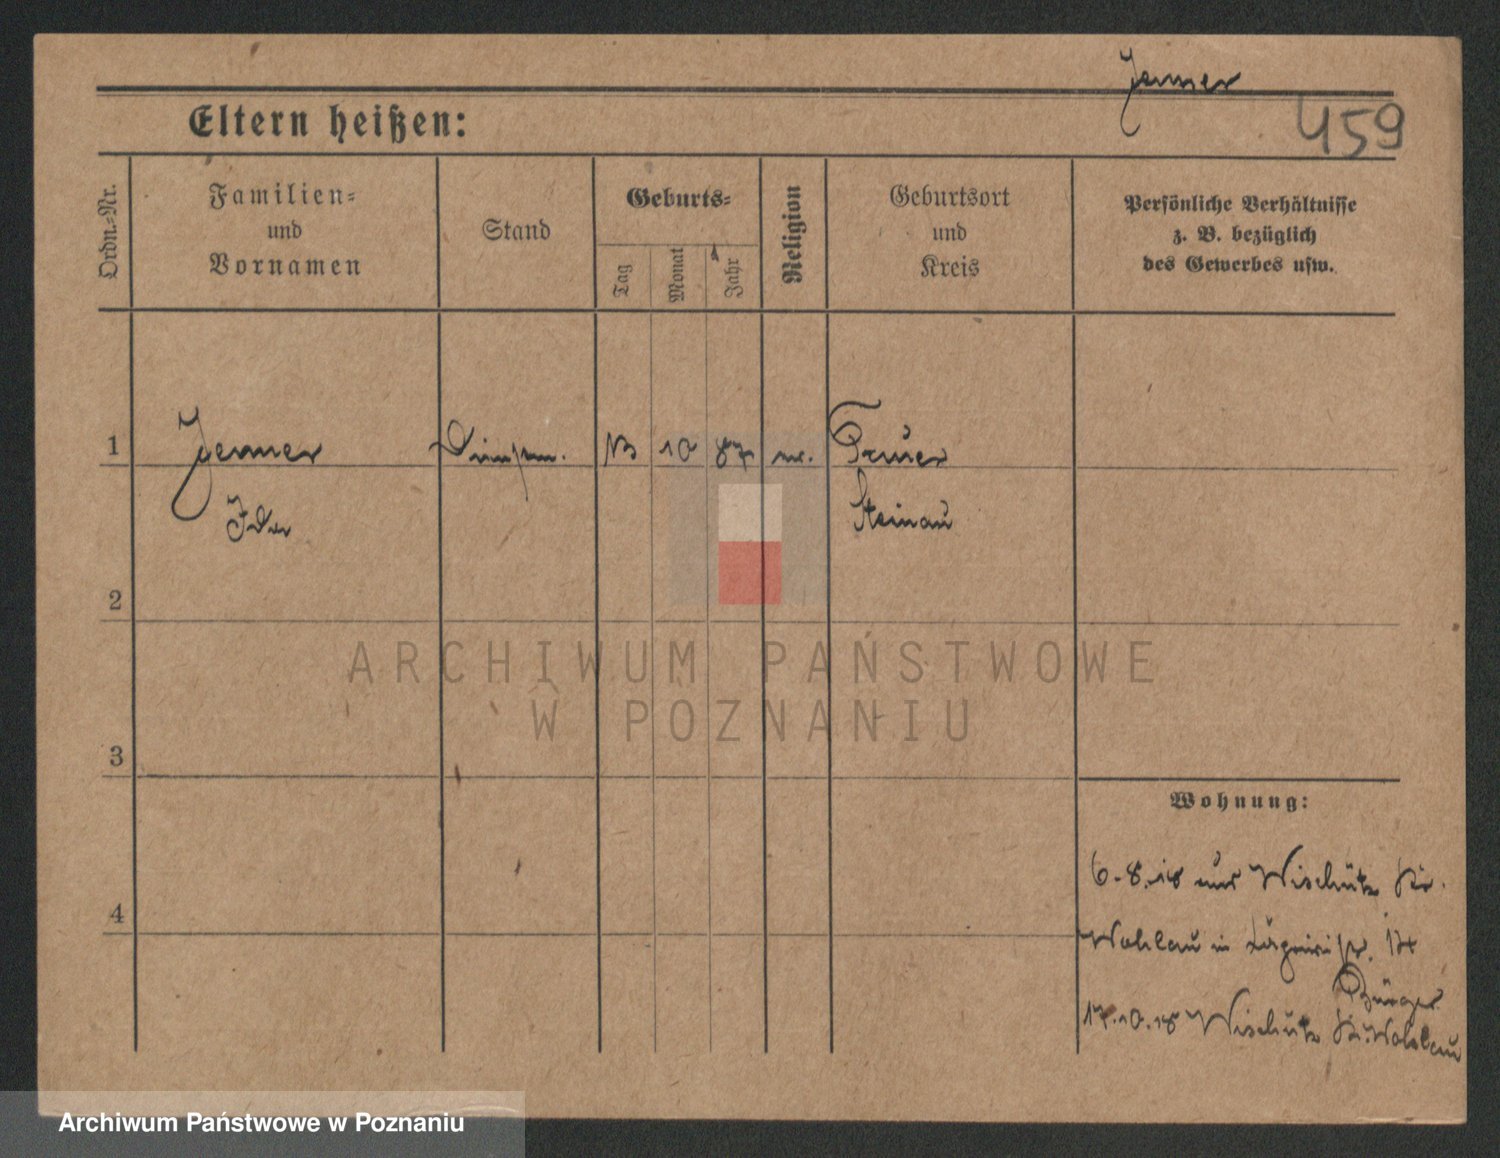 Jenner
459
Eltern heißen:
Ordn.-Nr.
Familien-
und
Vornamen
Stand
Geburts-
Tag
Monat
Jahr
Religion
Geburtsort
und
Kreis
Persönliche Verhältnisse
z. B. bezüglich
des Gewerbes usw.
1 Jenner 13 10 87
Ida Steinau
2
3
4
ARCHIWUM PAŃSTWOWE
W POZNANIU
Wohnung:
6.8.18 aus Wischütz Kr.
Wohlau in 14
Bürger
17.10.18 Wischütz Kr. Wohlau
Archiwum Państwowe w Poznaniu